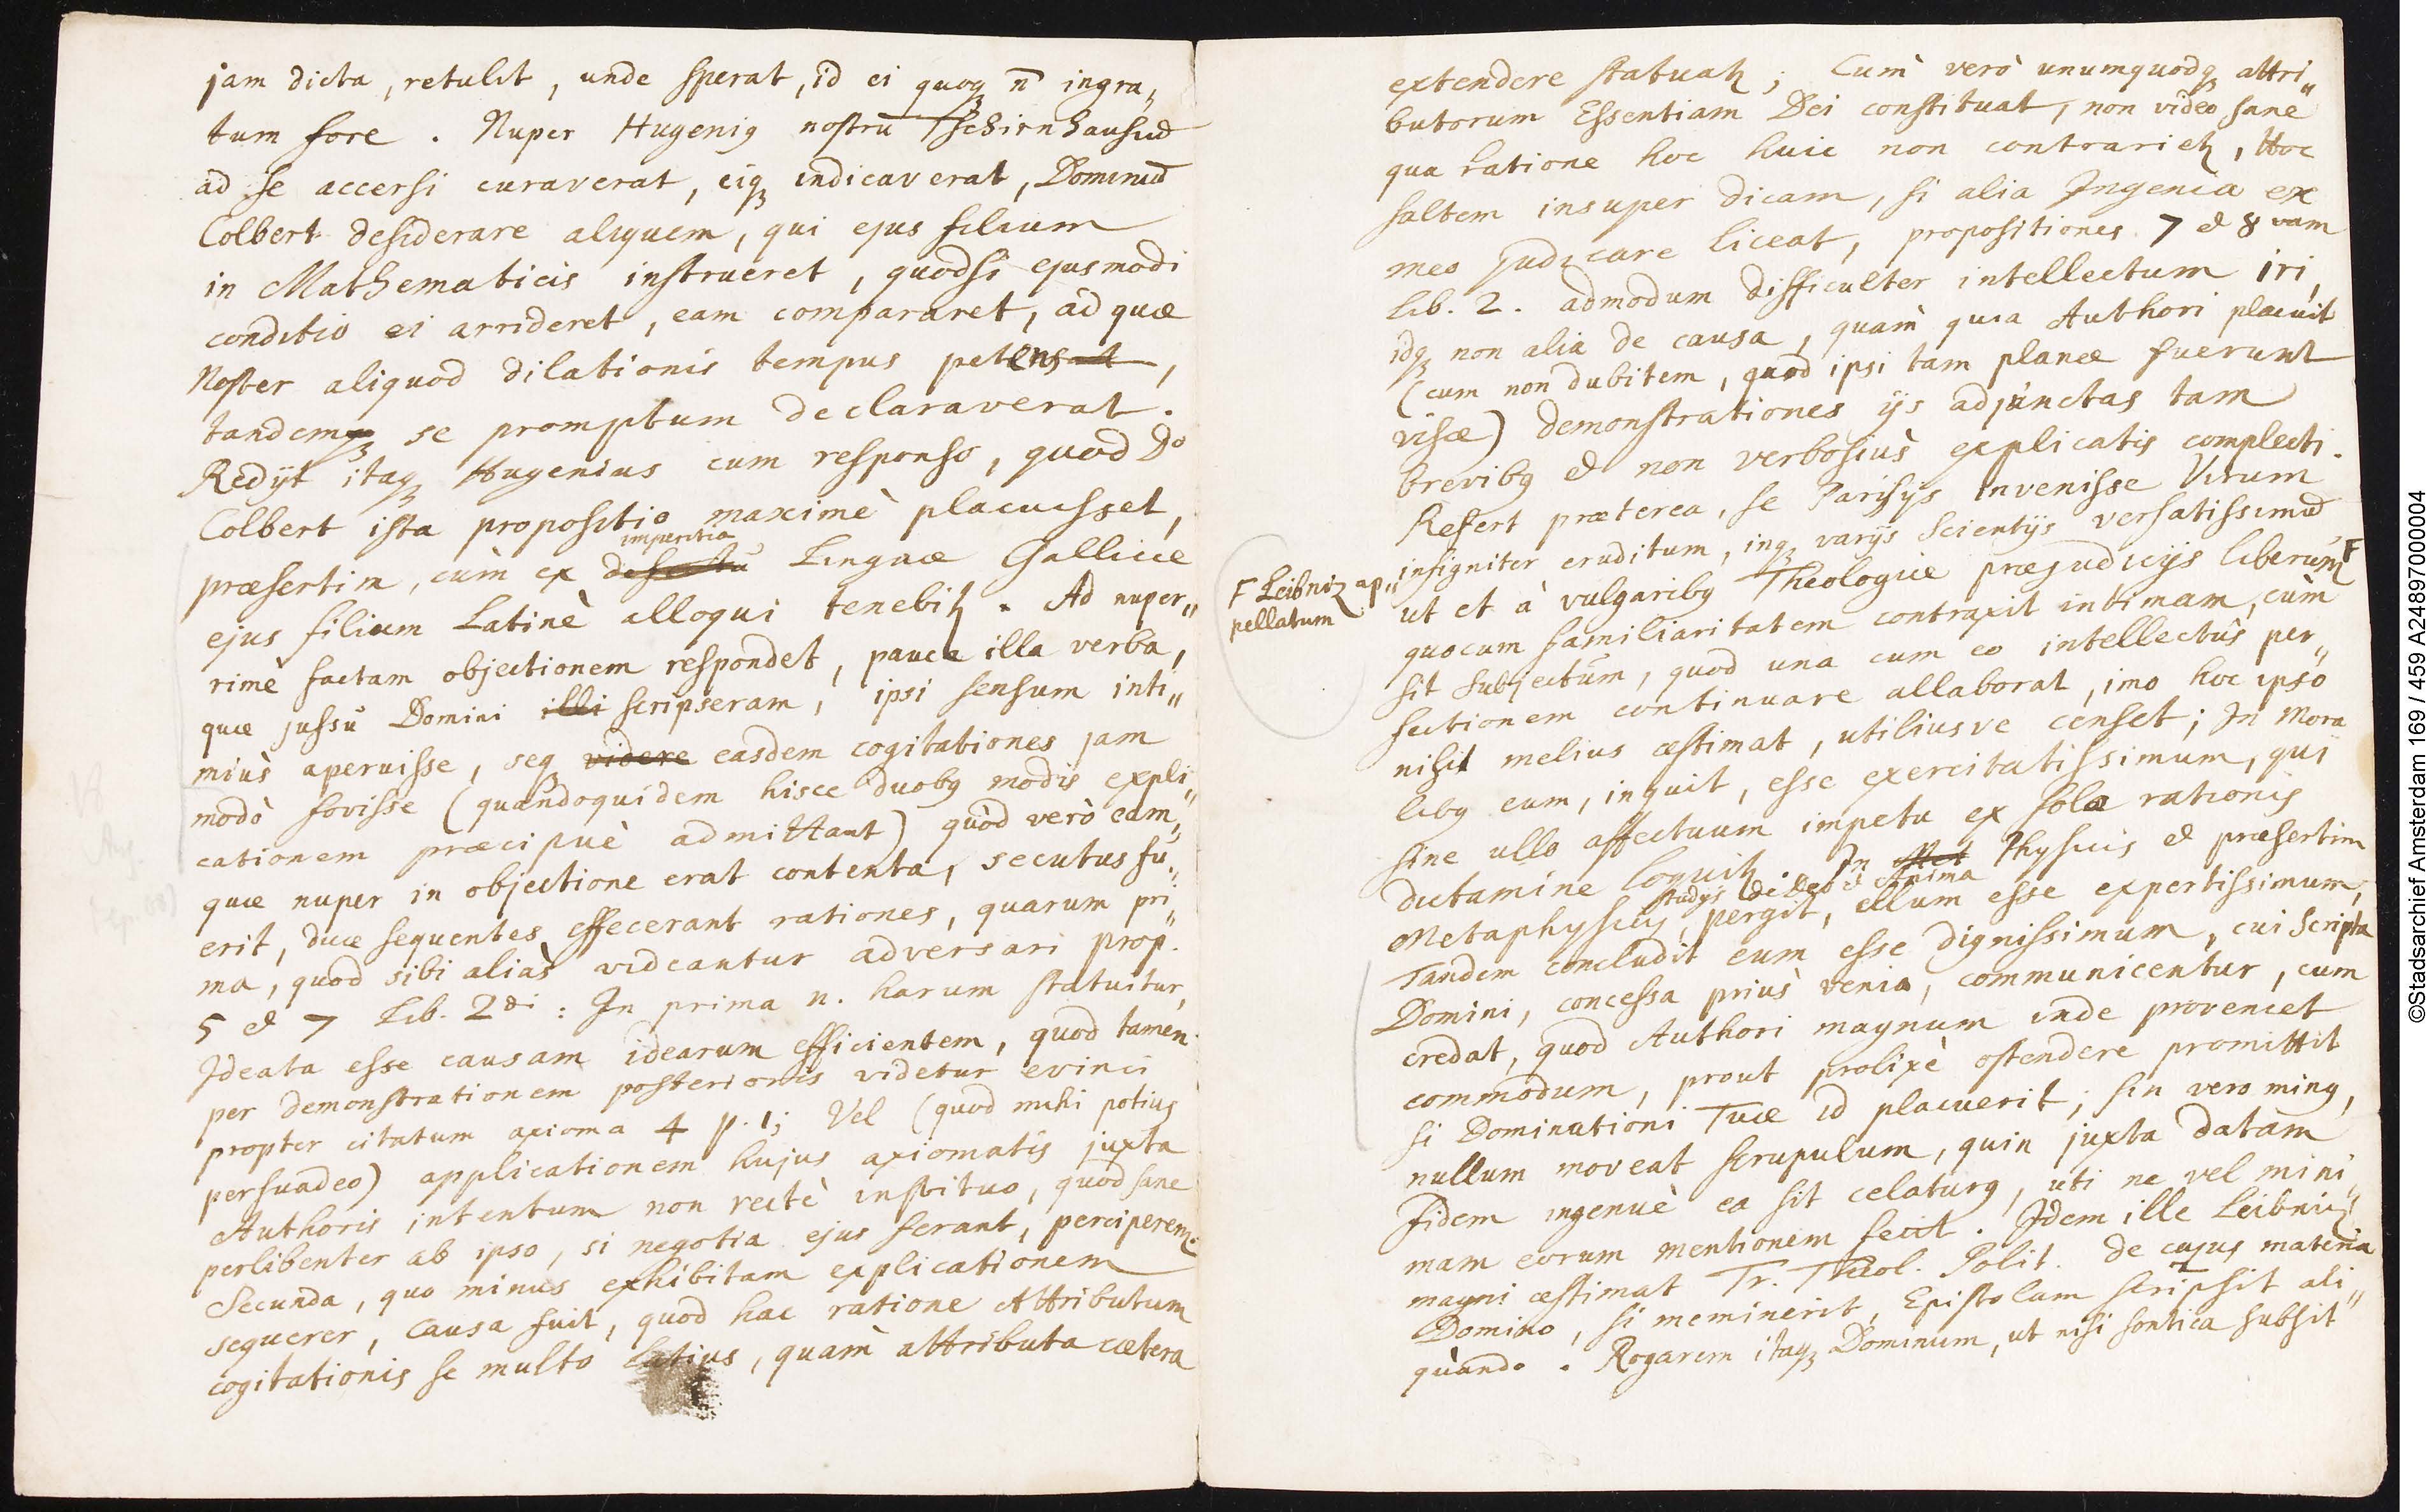 jam dicta, retulit, unde sperat, id ei quoq₃ n̄ ingra„
tum fore. Nuper Hugeni9 nostrū Tschirnhausiū
ad se accersi curaverat, eiq₃ indicaverat, Dominū
Colbert desiderare aliquem, qui ejus filium
in Mathematicis instrueret, quodsi ejusmodi
conditio ei arrideret, eam compararet, ad quæ
Noster aliquod dilationis tempus petens,
tandem se promptum declaraverat.
Redyt itaq₃ Hugenius cum responso, quod Do
Colbert ista propositio maximè placuisset,
imperitia
præsertim, cùm ex defectu Linguæ Gallicæ
ejus filium Latinè alloqui tenebitꝛ. Ad nuper„
rimè factam objectionem respondet, pauca illa verba,
quæ jussu Domini illi scripseram, ipsi sensum inti„
miùs aperuisse, seq₃ videre easdem cogitationes jam
modò fovisse (quandoquidem hisce duob9 modis expli„
cationem præcipuè admittant) quòd verò eam,
quæ nuper in objectione erat contenta, secutus fu„
erit, duæ sequentes effecerant rationes, quarum pri„
ma, quod sibi aliàs videantur adversari prop.
5 & 7 Lib. 2di: In prima n. harum statuitur,
Ideata esse causam idearum efficientem, quod tamen
per demonstrationem posterioris videtur evinci
propter citatum axioma 4 p. 1; Vel (quod mihi potius
persuadeo) applicationem hujus axiomatis juxta
Authoris intentum non rectè instituo, quod sane
perlibenter ab ipso, si negotia ejus ferant, perciperem.
Secunda, quo minus exhibitam explicationem
sequerer, causa fuit, quod hac ratione Attributum
cogitationis se multo latius, quàm attributa cætera
extendere statuatꝛ; Cum verò unumquodq₃ attri„
butorum Essentiam Dei constituat, non video sane
qua ratione hoc huic non contrarietꝛ, Hoc
saltem insuper dicam, si alia Ingenia ex
meo judicare liceat, propositiones 7 & 8vam
Lib. 2. admodum difficulter intellectum iri,
idq₃ non alia de causa, quàm quia Authori placuit
(cum non dubitem, quod ipsi tam planæ fuerunt
visæ) demonstrationes ijs adjunctas tam
brevib9 & non verbosiùs explicatis complecti.
Refert præterea, se Parisijs invenisse Virum
insigniter eruditum, inq₃ varijs Scientijs versatissimū
ut et à vulgarib9 Theologiæ præjudicijs liberum F
F Leibniz ap„
pellatum
quocum familiaritatem contraxit intimam, cùm
sit subjectum, quod una cum eo intellectûs per„
fectionem continuare allaborat, imo hoc ipso
nihil melius æstimat, utiliusve censet; In Mora
lib9 eum, inquit, esse exercitatissimum, qui
sine ullo affectuum impetu ex solæ rationis
dictamine loquitꝛ. In Met Physicis & præsertim
studijs de Deo & Anima
Metaphysicis, pergit, illum esse expertissimum,
Tandem concludit eum esse dignissimum, cui Scripta
Domini, concessa priùs venia, communicentur, cum
credat, quod Authori magnum inde proveniet
commodum, prout prolixè ostendere promittit
si Dominationi Tuæ id placuerit; sin vero min9,
nullum moveat scrupulum, quin juxta datam
Fidem ingenuè ea sit celatur9, uti ne vel mini
mam eorum mentionem fecit. Idem ille Leibniz
magni æstimat Tr. Theol. Polit. De cujus materia
Domino, si meminerit, Epistolam scripsit ali„
quando. Rogarem itaq₃ Dominum, ut nisi sontica subsit
©Stadsarchief Amsterdam 169 / 459 A24897000004